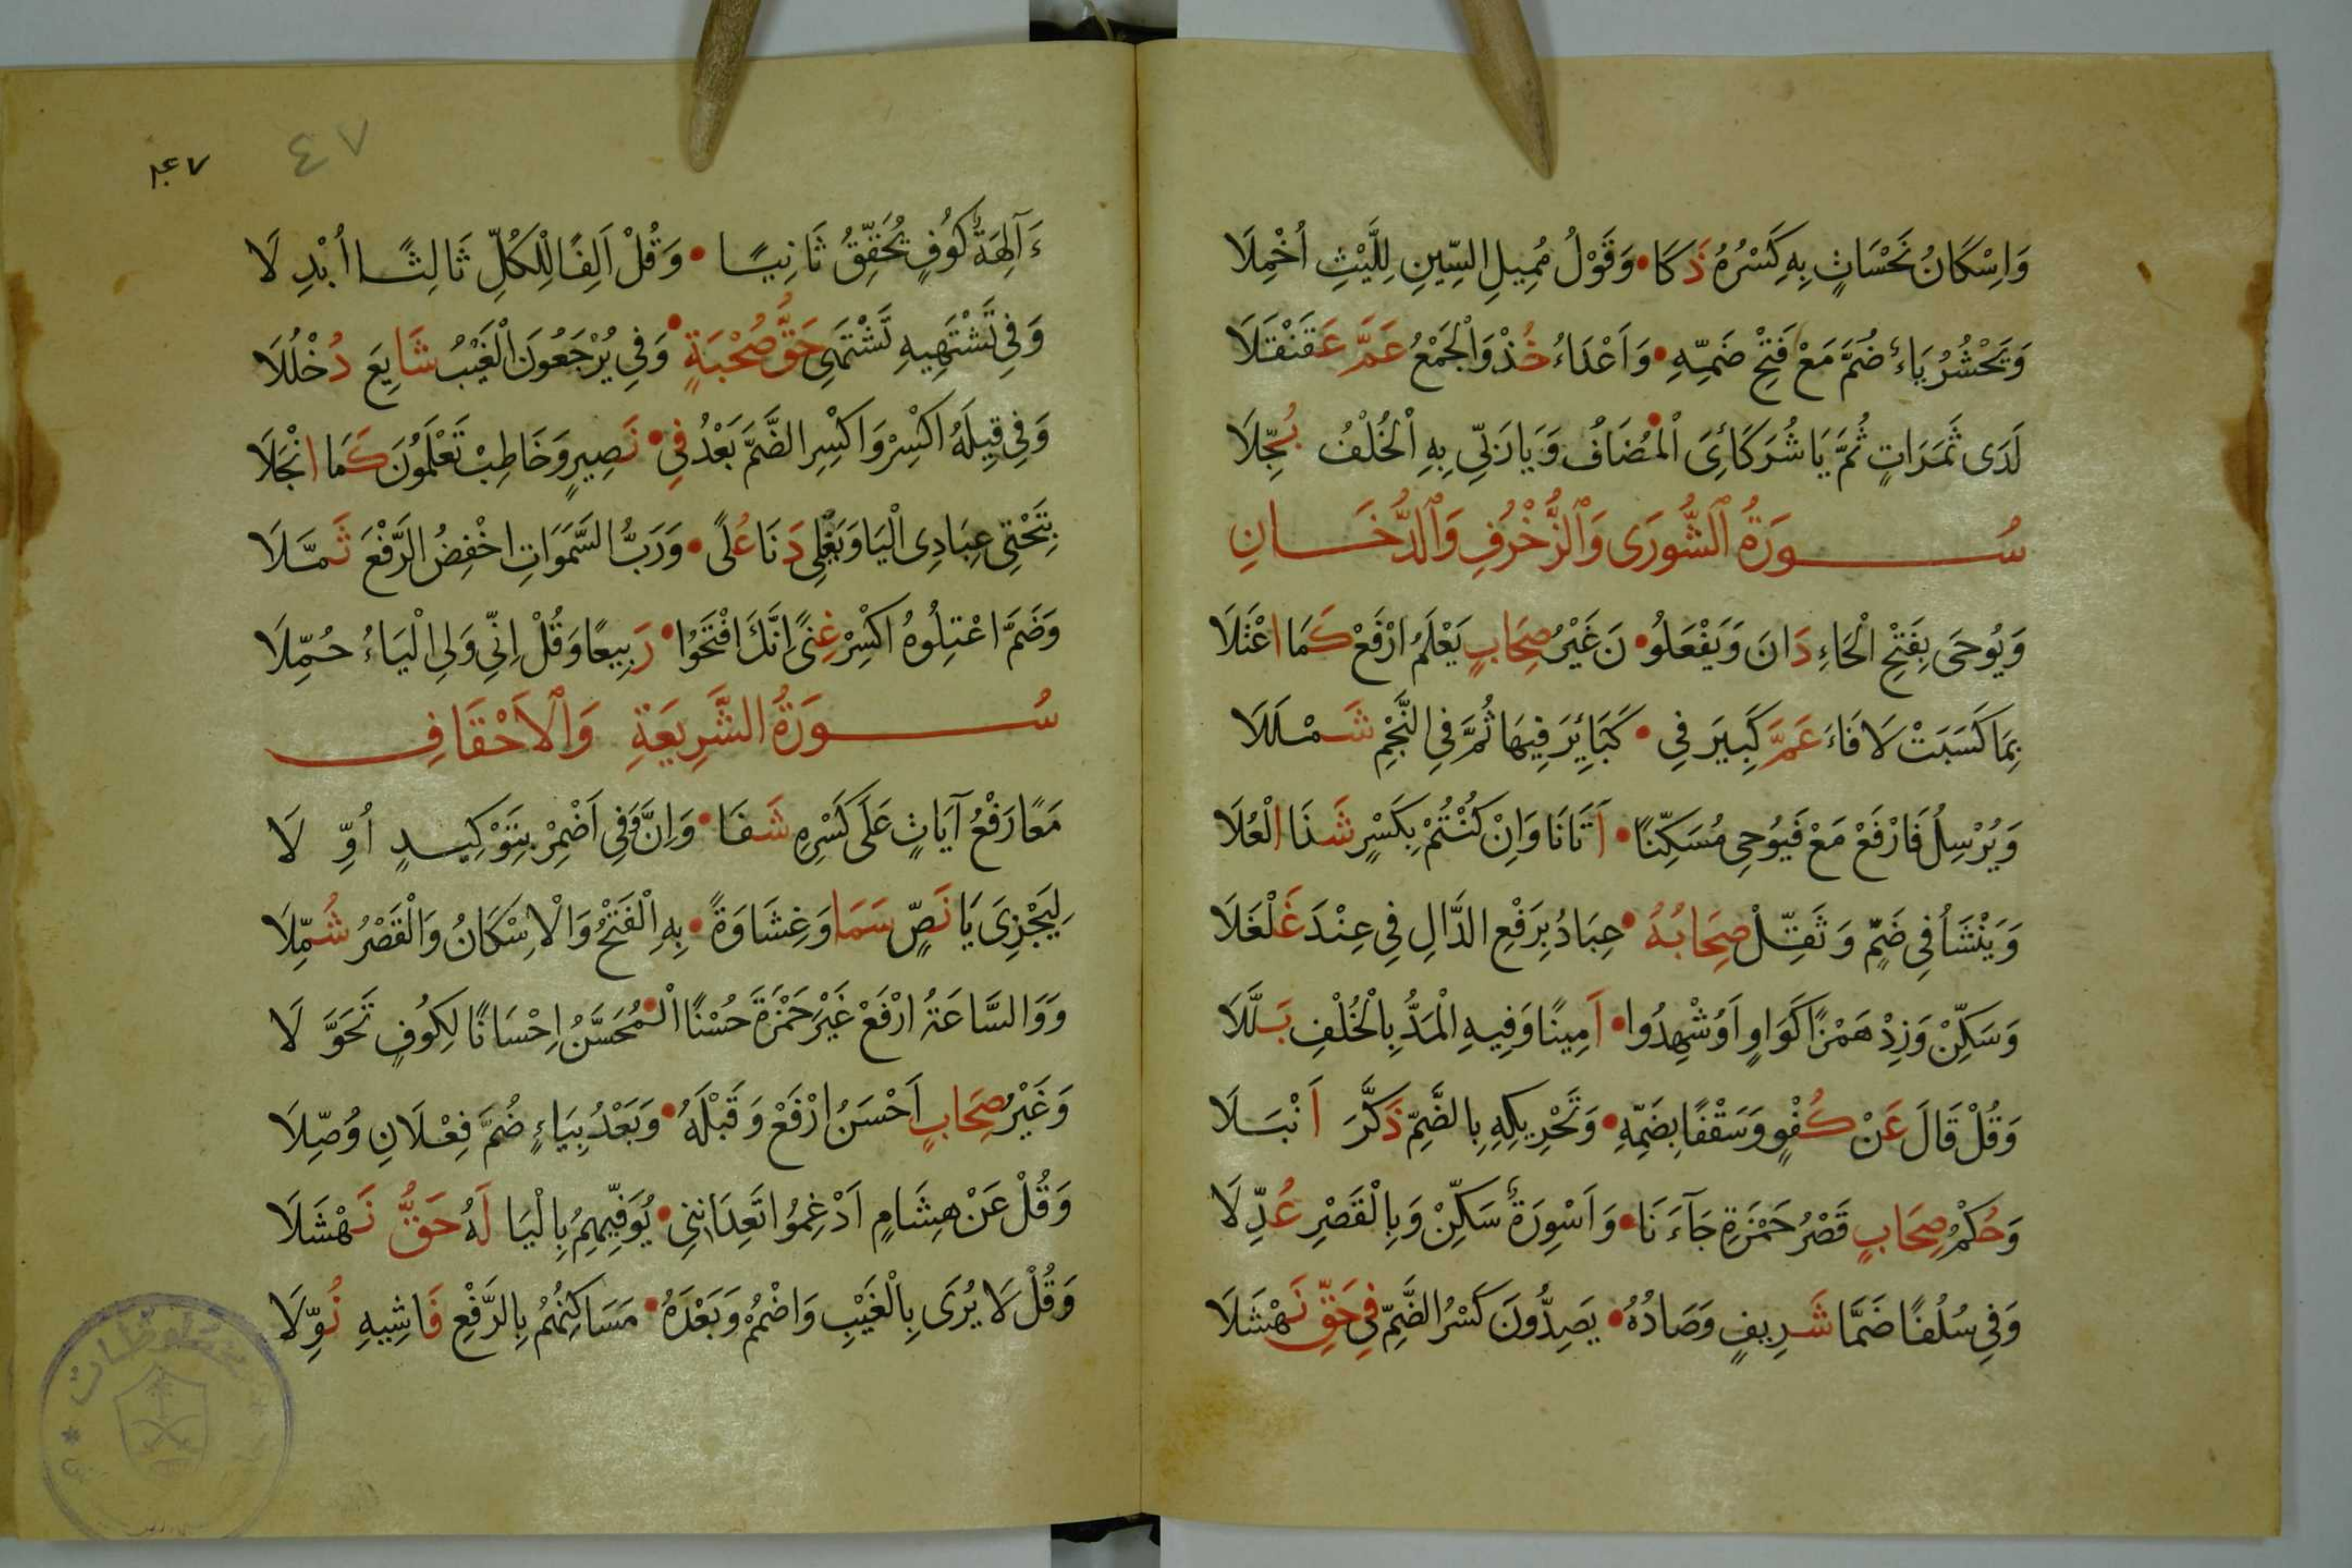 وَاِسْكَانُ نَحْسَاتٍ بِهِ كَسْرُهُ ذَكَا • وَقَوْلُ مُمِيلِ السِّينِ لِلَّيْثِ اُخْمِلَا
وَيَحْشُرُ يَاءٌ ضُمَّ مَعْ فَتْحِ ضَمِّهِ • وَاَعْدَاءُ خُذْ وَالْجَمْعُ عَمَّ عَقَنْقَلَا
لَدَى ثَمَرَاتٍ ثُمَّ يَا شُرَكَائِىَ الْمُضَافُ وَيَا رَبِّى بِهِ الْخُلْفُ بُجِّلَا
سُورَةُ الشُّورَى وَالزُّخْرُفِ وَالدُّخَانِ
وَيُوحَى بِفَتْحِ الْحَاءِ دَانَ وَيَفْعَلُو • نَ غَيْرُ صِحَابٍ يَعْلَمُ ارْفَعْ كَمَا اعْتَلَا
بِمَا كَسَبَتْ لَا فَاءَ عَمَّ كَبِيرَ فِى • كَبَائِرَ فِيهَا ثُمَّ فِى النَّجْمِ شَمْلَلَا
وَيُرْسِلُ فَارْفَعْ مَعْ فَيُوحِى مُسَكِّنًا • اَتَانَا وَاِنْ كُنْتُمْ بِكَسْرٍ شَذَا الْعُلَا
وَيَنْشَأُ فِى ضَمٍّ وَثَقِّلْ صِحَابُهُ • عِبَادُ بِرَفْعِ الدَّالِ فِى عِنْدَ غَلْغَلَا
وَسَكِّنْ وَزِدْ هَمْزًا كَوَاوٍ اَوُشْهِدُوا • اَمِينًا وَفِيهِ الْمَدُّ بِالْخُلْفِ بَلَّلَا
وَقُلْ قَالَ عَنْ كُفْوٍ وَسَقْفًا بِضَمِّهِ • وَتَحْرِيكِهِ بِالضَّمِّ ذَكَّرَ اَنْبَلَا
وَحُكْمُ صِحَابٍ قَصْرُ حَمْزَةِ جَآءَنَا • وَاَسْوِرَةٌ سَكِّنْ وَبِالْقَصْرِ عُدِّلَا
وَفِى سُلُفًا ضَمَّا شَرِيفٍ وَصَادُهُ • يَصِدُّونَ كَسْرُ الضَّمِّ فِى حَقِّ نَهْشَلَا
٤٧
ءَآلِهَةٌ كُوفٍ يُحَقِّقُ ثَانِيًا • وَقُلْ اَلِفًا لِلْكُلِّ ثَالِثًا اُبْدِلَا
وَفِى تَشْتَهِيهِ تَشْتَهِى حَقُّ صُحْبَةٍ • وَفِى يُرْجَعُونَ الْغَيْبُ شَايِعَ دُخْلُلَا
وَفِى قِيلَهُ اكْسِرْ وَاكْسِرِ الضَّمَّ بَعْدُ فِى • نَصِيرٍ وَخَاطِبْ تَعْلَمُونَ كَمَا انْجَلَا
بِتَحْتِى عِبَادِى الْيَا وَيَغْلِى دَنَا عُلًى • وَرَبُّ السَّمَوَاتِ اخْفِضُ الرَّفْعَ ثَمَّلَا
وَضَمَّ اعْتِلُوهُ اكْسِرْ غِنًى اِنَّكَ افْتَحُوا • رَبِيعًا وَقُلْ اِنِّى وَلِى الْيَاءُ حُمِّلَا
سُورَةُ الشَّرِيعَةِ وَالْاَحْقَافِ
مَعًا رَفْعُ آيَاتٍ عَلَى كَسْرِهِ شَفَا • وَاِنَّ وَفِى اَضْمِرْ بِتَوْكِيدٍ اُوِّلَا
لِيَجْزِىَ يَا نَصٍّ سَمَا وَغِشَاوَةً • بِهِ الْفَتْحُ وَالْاِسْكَانُ وَالْقَصْرُ شُمِّلَا
وَوَالسَّاعَةُ ارْفَعْ غَيْرَ حَمْزَةَ حُسْنًا الْمُحَسَّنُ اِحْسَانًا لِكُوفٍ تَحَوَّلَا
وَغَيْرُ صِحَابٍ اَحْسَنُ ارْفَعْ وَقَبْلَهُ • وَبَعْدُ بِيَاءٍ ضُمَّ فِعْلَانِ وُصِّلَا
وَقُلْ عَنْ هِشَامٍ اَدْغِمُوا اتَعِدَانِنِى • يُوَفِّيهِمُ بِالْيَا لَهُ حَقُّ نَهْشَلَا
وَقُلْ لَا يُرَى بِالْغَيْبِ وَاضْمُمْ وَبَعْدَهُ • مَسَاكِنُهُمْ بِالرَّفْعِ فَاشِيهِ نُوِّلَا